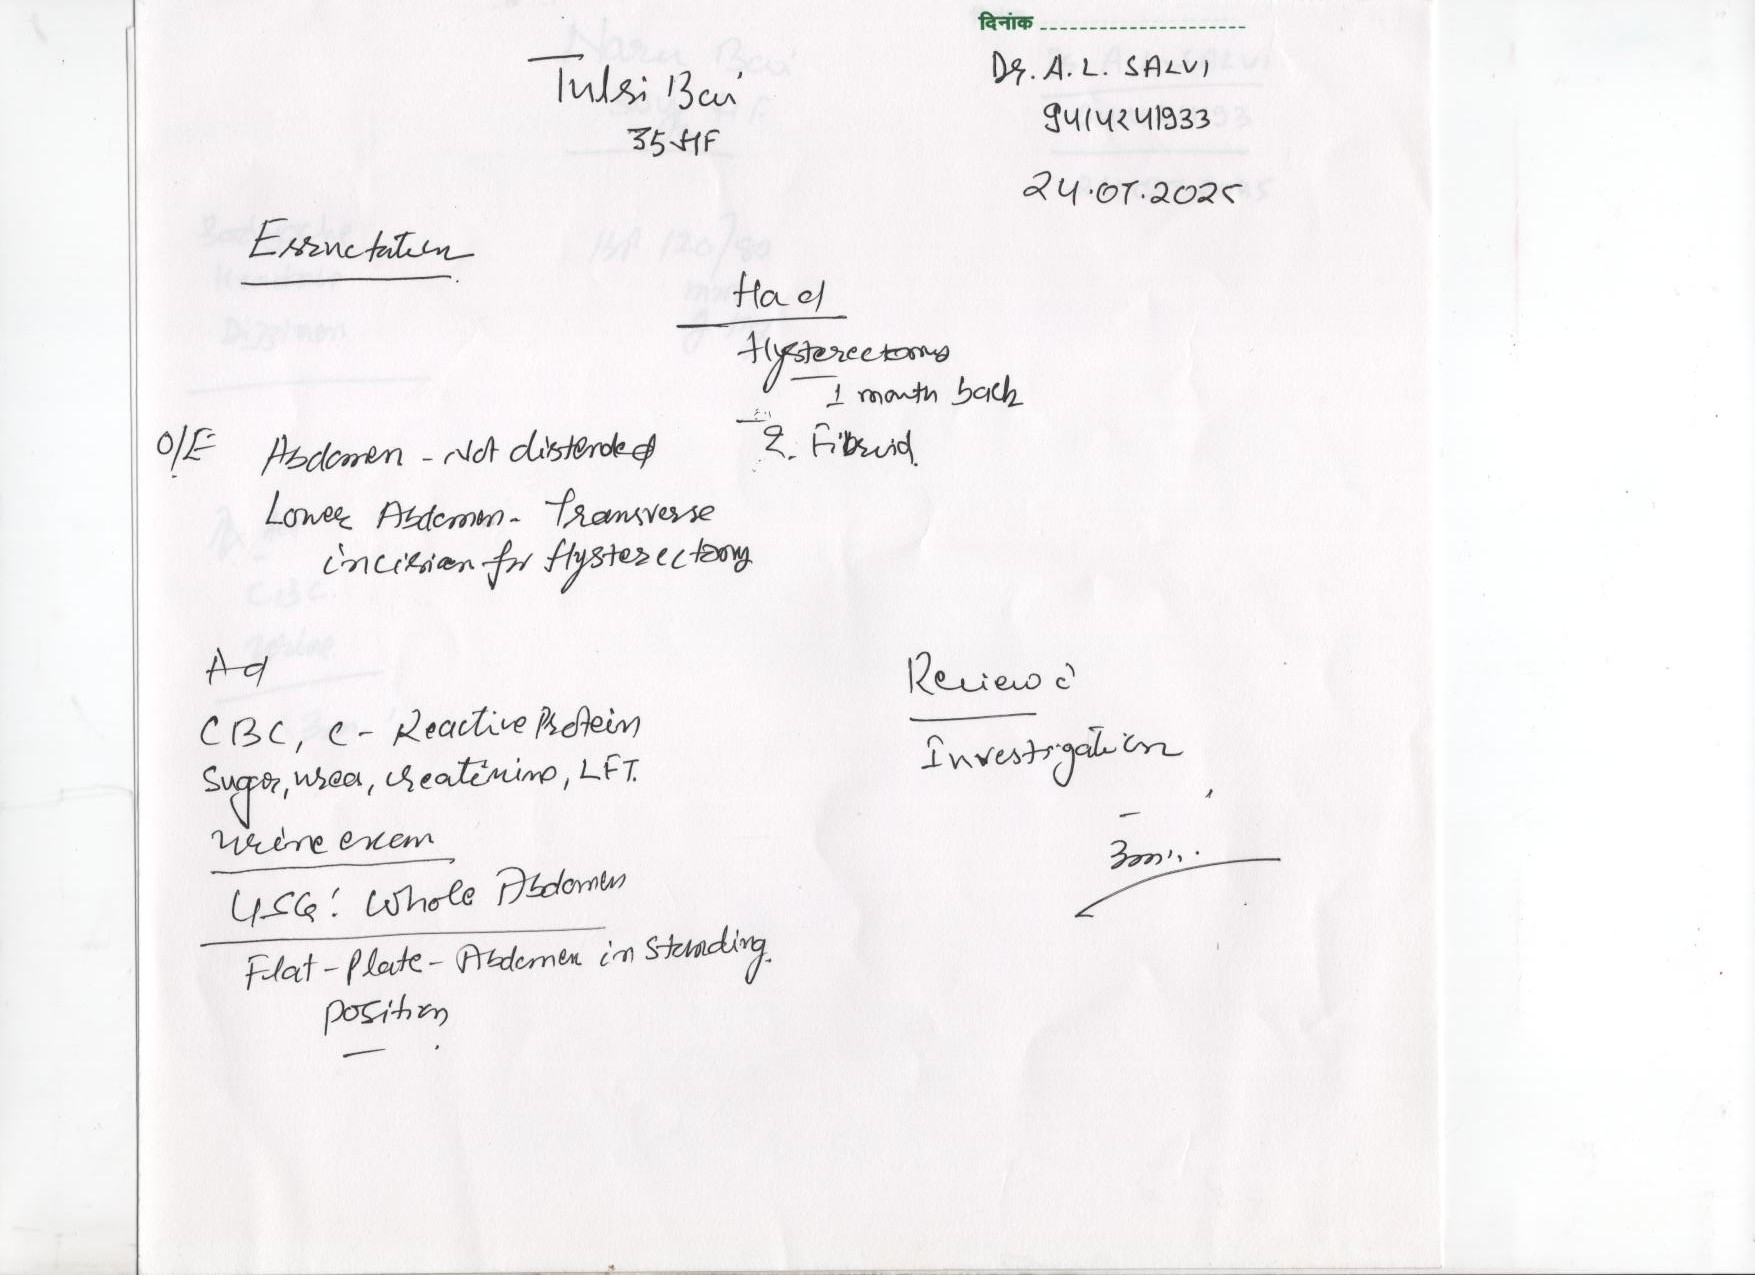 दिनांक
Dr. A.L. SALVI
9414241933
24.07.2025
Tulsi Bai
35 HF
Erructation
Had
Hysterectomy
1 month back
Fibroid.
O/E Abdomen - Not distended
Lower Abdomen - Transverse
incision for Hysterectomy
Ad
CBC, C-Reactive Protein
Sugar, urea, creatinine, LFT.
Urine exam
USG: Whole Abdomen
Flat-Plate-Abdomen in standing
position
Review c̄
Investigation